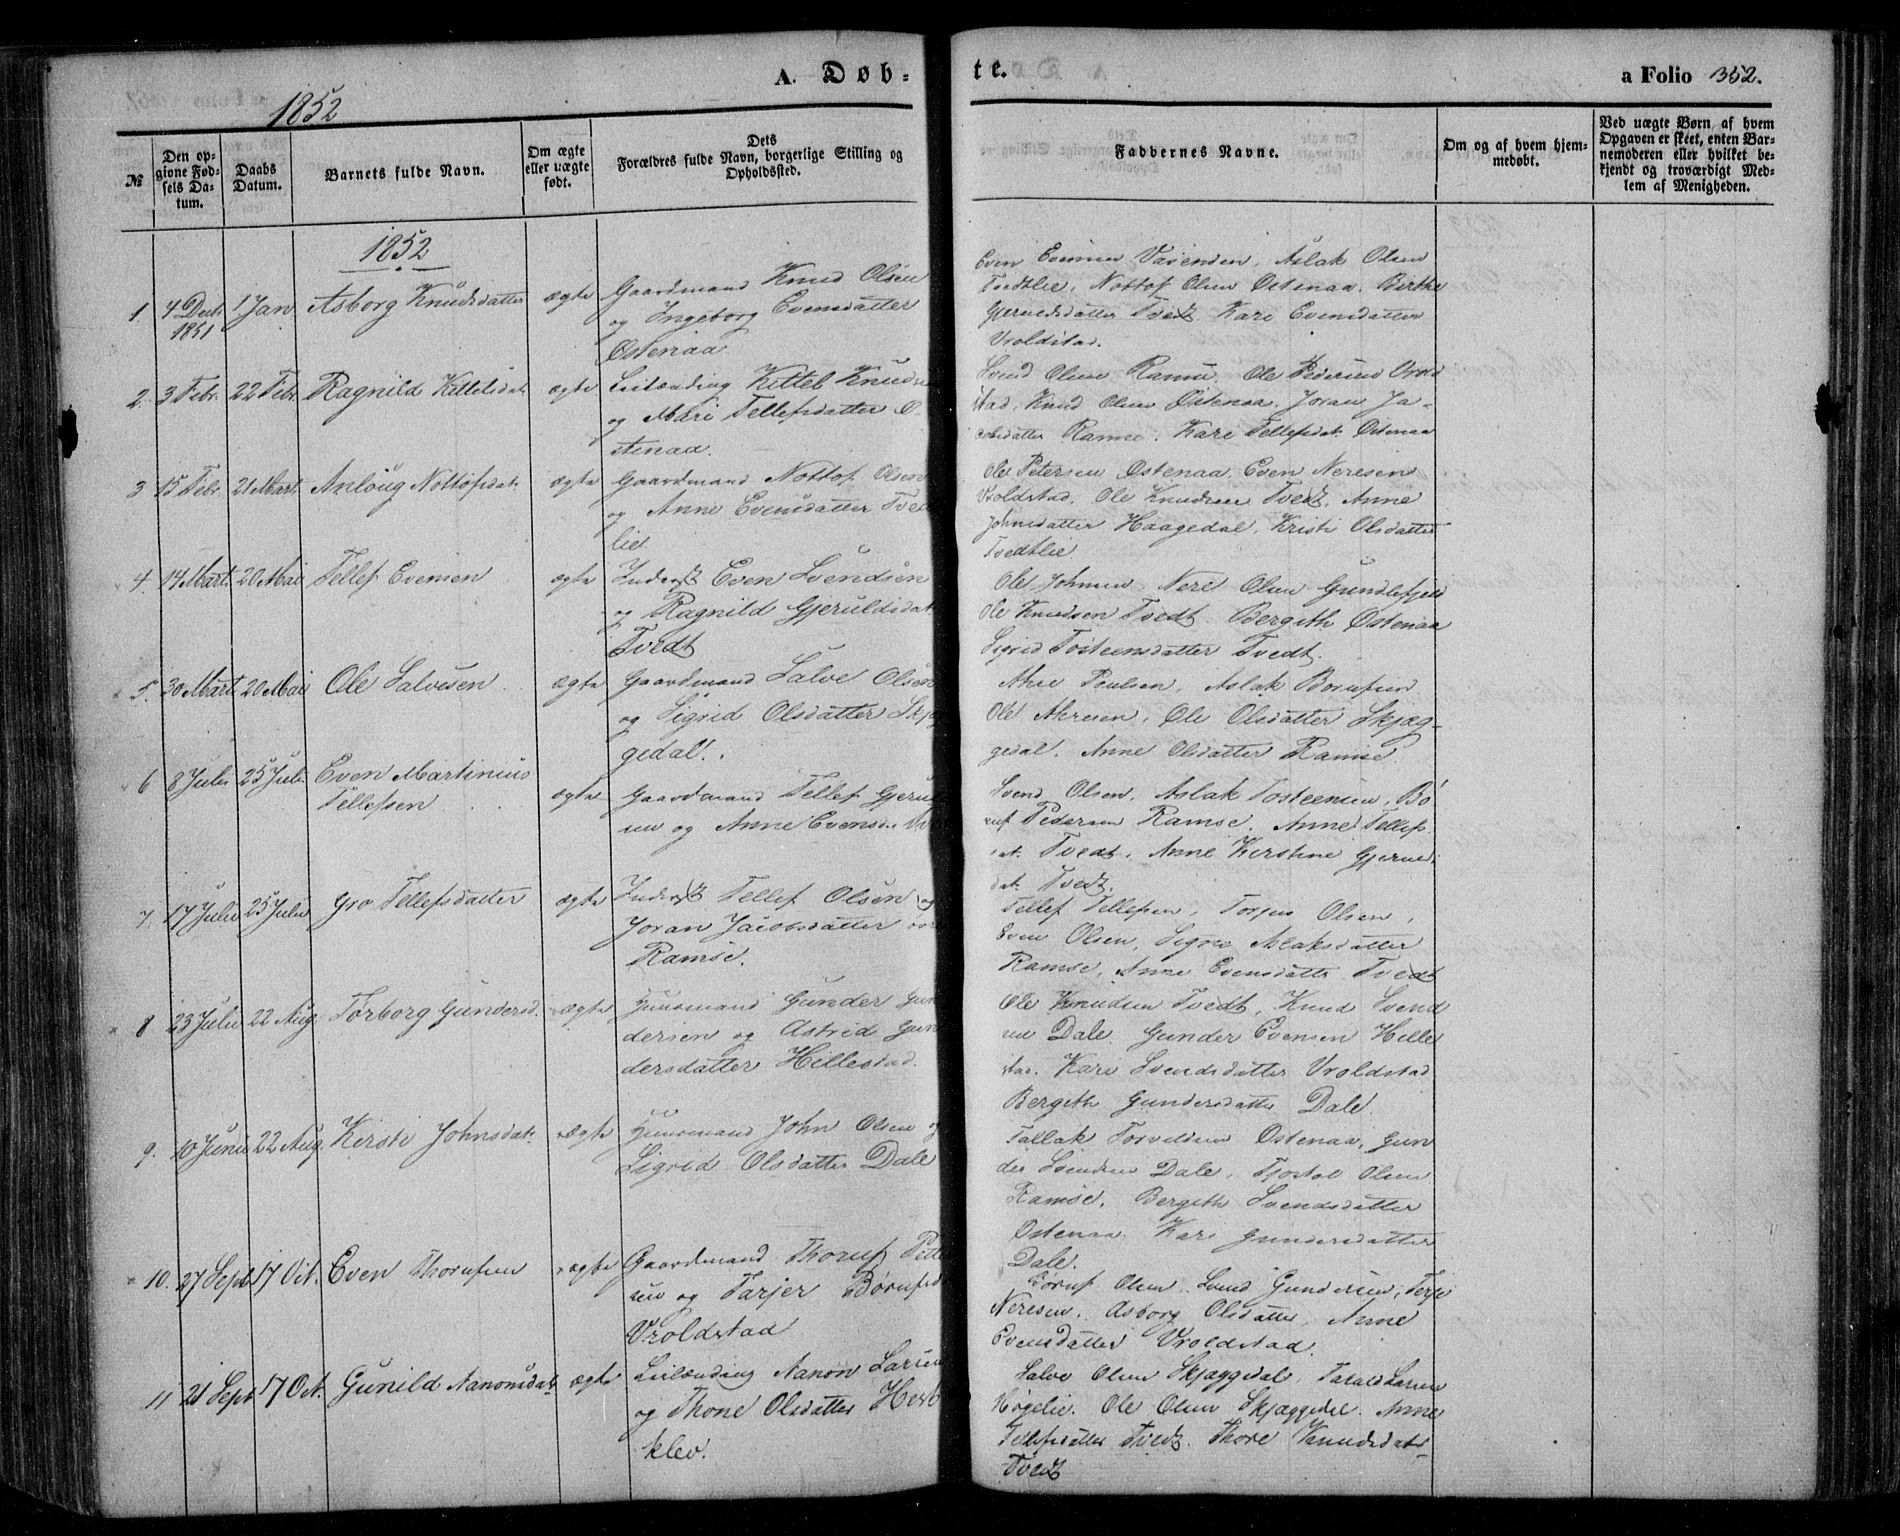 A. Døb-
te.
a Folio 352.
1852
№
Den op-
givne Fød-
sels Da-
tum.
Daabs
Datum.
Barnets fulde Navn.
Om ægte
eller uægte
født.
Dets
Forældres fulde Navn, borgerlige Stilling og
Opholdssted.
Faddernes Navne.
Om og af hvem hjem-
medøbt.
Ved uægte Børn af hvem
Opgaven er skeet, enten Bar-
nemoderen eller hvilket be-
kjendt og troværdigt Med-
lem af Menigheden.
1852
1. 4 Decb. 1 Jan. Asborg Knudsdatter ægte Gaardmand Knud Olsen
1851 og Ingeborg Evensdatter
Østenaa
Even Aslak Olsen
Tvedtlie, Nottof Olsen Østenaa. Birthe
datter Tvedt. Kari Evensdatter
Vroldstad.
2. 3 Febr. 22 Febr. Ragnild Kittelsdat. ægte Leilænding Kittel Knuds
og Mari Tellefsdatter Ø
stenaa.
Svend Olsen Ramse. Ole Pedersen Vrold
stad, Knud Olsen Østenaa. Joran Ja-
cobsdatter Ramse. Kari Tellefsdat. Østenaa
3 15 Febr. 21 Mart. Anloug Nottofsdat. ægte Gaardmand Nottof Olsen
og Anne Evensdatter Tved
lie
Ole Petersen Østenaa, Even Neresen
Vroldstad, Ole Knudsen Tvedt, Anne
Johnsdatter Haagedal, Kristi Olsdatter
Tvedtlie
4. 14 Mart. 20 Mai Tellef Evensen ægte Inderst Even Svendsen
og Ragnild Gjeruldsdat
Tvedt
Ole Johnsen Nere Olsen Gundlefjeld
Ole Knudsen Tvedt. Bergith Østenaa
Sigrid Tosteensdatter Tvedt.
5. 30 Mart 20 Mai Ole Salvesen ægte Gaardmand Salve Olsen
og Sigrid Olsdatter Skjæg
gedal.
Ahre Poulsen, Aslak Borufsen
Ole Ahresen, Ole Olsdatter Skjæg-
gedal. Anne Olsdatter Ramse.
6 8 Juli 25 Juli Even Martinius ægte Gaardmand Tellef
Tellefsen og Anne
Svend Olsen, Aslak Tosteensen, Bø
ruf Pedersen Ramse. Anne Tellefs
dat. Tvedt, Anne Kirstine
dat. Tvedt.
7. 17 Juli 25 Juli Gro Tellefsdatter ægte Inderst Tellef Olsen og
Joran Jacobsdatter øvre
Ramse.
Tellef Tellefsen, Torjus Olsen,
Even Olsen, Signe Aslaksdatter
Ramse, Anne Evensdatter Tvedt
8 23 Juli 22 Aug. Torborg Gundersd. ægte Huusmand Gunder Gun
dersen og Astrid Gun
dersdatter Hillestad.
Ole Knudsen Tvedt, Knud Svend
sen Dale. Gunder Evensen Hille
stad. Kari Svendsdatter Vroldstad
Bergith Gundersdatter Dale.
9. 10 Juni 22 Aug. Kirsti Johnsdat. ægte Huusmand John Olsen og
Sigrid Olsdatter Dale
Tallak Torvildsen Østenaa, Gun
der Svendsen Dale, Tjostol Olsen
Ramse, Bergith Svendsdatter
Østenaa. Kari Gundersdatter
Dale.
10. 27 Sept. 17 Oct. Even Thorufsen ægte Gaardmand Thoruf
sen og Tarjer Børufsd
Vroldstad
Børuf Olsen, Svend Gundersen, Terje
Neresen, Asborg Olsdatter, Anne
Evensdatter Vroldstad.
11 21 Sept. 17 Oct. Gunild Aanonsdat. ægte Leilænding Aanon Larsen
og Thone Olsdatter
klev.
Salve Olsen Skjæggedal, Tarald Larsen
Høgelie. Ole Olsen Skjæggedal. Anne
Tellefsdatter Tvedt. Thore Knudsdat.
Tvedt